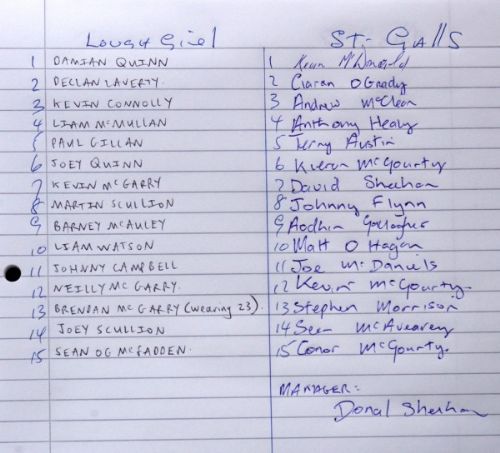 Lough Giel
1 DAMIAN QUINN
2 DECLAN LAVERTY.
3 KEVIN CONNOLLY
4 LIAM McMULLAN
5 PAUL GILLAN
6 JOEY QUINN
7 KEVIN McGARRY
8 MARTIN SCULLION
9 BARNEY McAULEY
10 LIAM WATSON
11 JOHNNY CAMPBELL
12 NEILLY McGARRY.
13 BRENDAN McGARRY (wearing 23).
14 JOEY SCULLION
15 SEAN OG McFADDEN.
St. Galls
1 McDonald
2 Ciaran O Grady
3 Andrew McClean
4 Anthony Healy
5 Terry Austin
6 Kieran McGourty
7 David Sheehan
8 Johnny Flynn
9 Aodhin Gallagher
10 Matt O Hagan
11 Joe McDaniels
12 Kevin McGourty.
13 Stephen Morrison
14 Sean McAvearey
15 Conor McGourty.
MANAGER:
Donal Sheehan